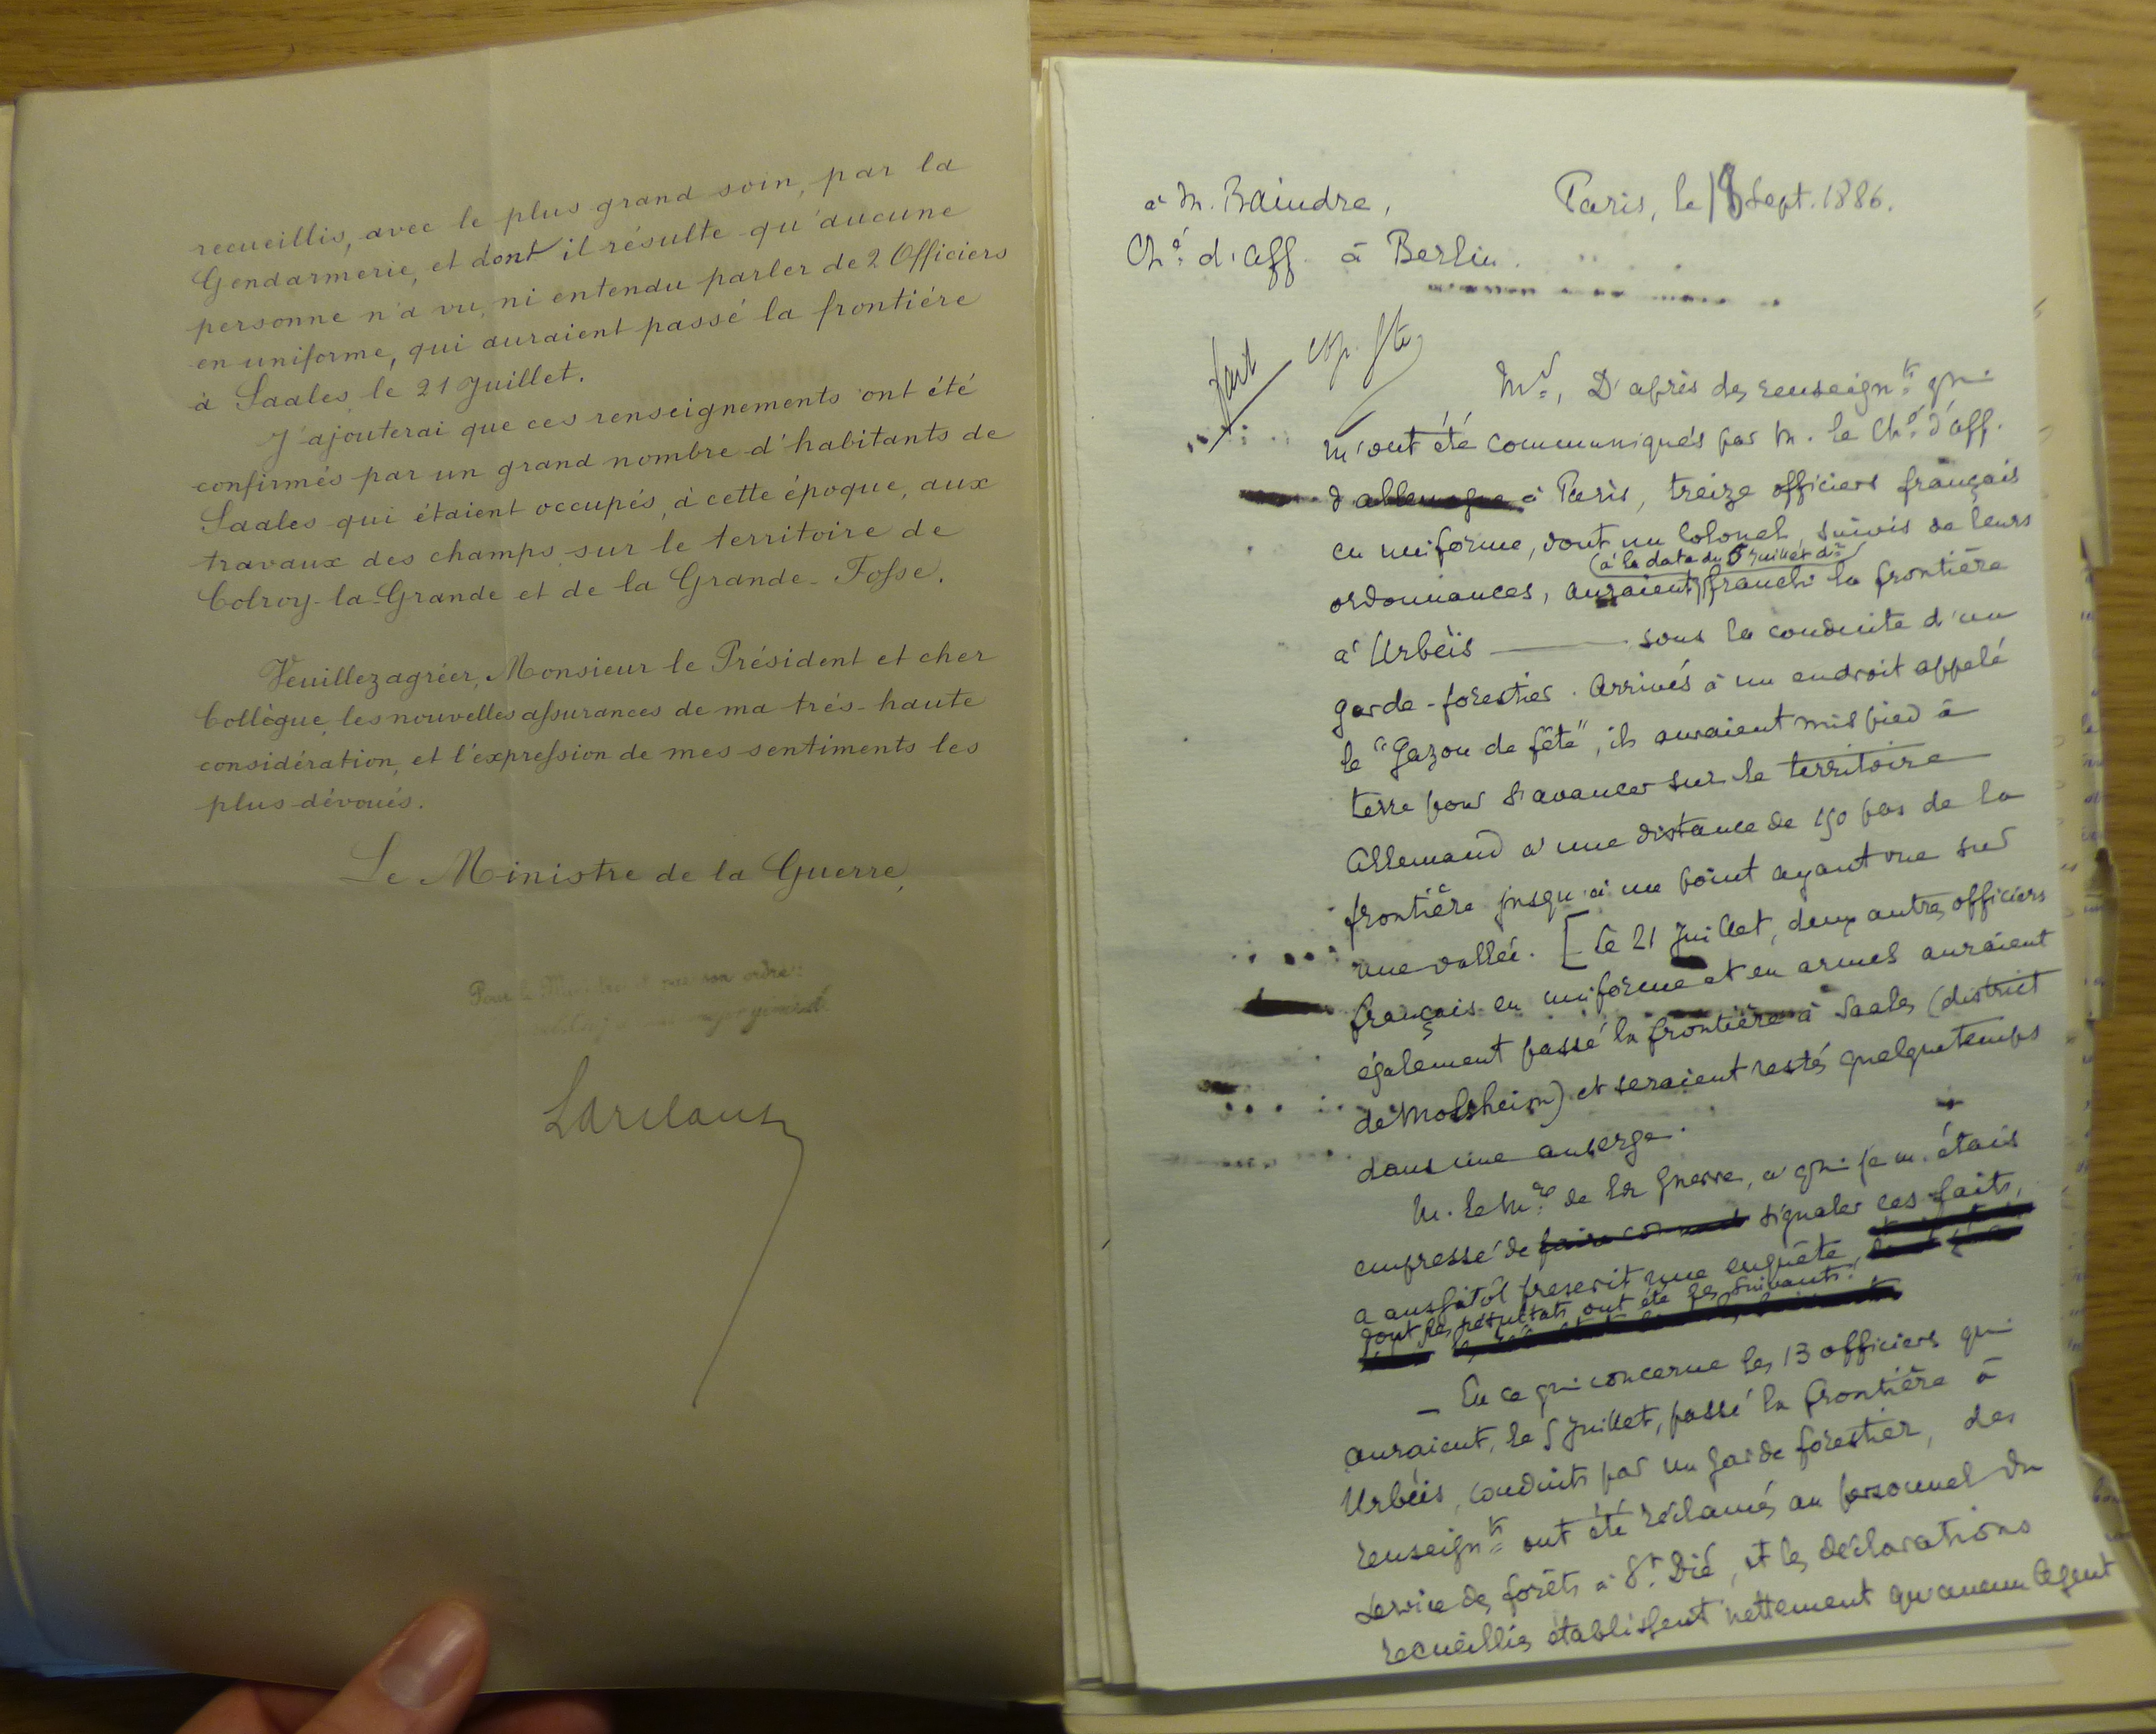 recueillis, avec le plus grand soin, par la
Gendarmerie, et dont il résulte qu'aucune
personne n'a vu, ni entendu parler de 2 Officiers
en uniforme, qui auraient passé la frontière
à Saales le 21 Juillet.
J'ajouterai que ces renseignements ont été
confirmés par un grand nombre d'habitants de
Saales qui étaient occupés, à cette époque, aux
travaux des champs sur le territoire de
Colroy-la-Grande et de la Grande-Fosse.
Veuillez agréer, Monsieur le Président et cher
Collègue, les nouvelles assurances de ma très-haute
considération, et l'expression de mes sentiments les
plus dévoués.
Le Ministre de la Guerre,
Pour le Ministre et par son ordre:
général
à M. Raindre,
Paris, le 18 Sept. 1886.
Ché d'aff. à Berlin.
fait
Mr, D'après des renseignts qui
m'ont été communiqués par M. le Ché d'aff.
d'allemagne à Paris, treize officiers français
en uniforme, dont un Colonel, suivis de leurs
(à la date du 5 Juillet dr)
ordonnances, auraient franchi la frontière
à Urbéis — sous la conduite d'un
garde-forestier. Arrivés à un endroit appelé
le "Gazon de fête", ils auraient mis pied à
terre pour s'avancer sur le territoire
Allemand à une distance de 150 pas de la
frontière jusqu'à un point ayant vue sur
une vallée. [Le 21 Juillet, deux autres officiers
français en uniforme et en armes auraient
également passé la frontière à Saales (district
de Molsheim) et seraient restés quelque temps
dans une auberge.
M. le Mre de la Guerre, à qui je m'étais
empressé de signaler ces faits,
a aussitôt prescrit une enquête,
dont les résultats ont été les suivants:
— En ce qui concerne les 13 officiers qui
auraient, le 5 Juillet, passé la frontière à
Urbéis, conduits par un garde forestier, des
renseignts ont été réclamés au personnel du
service des forêts à St. Dié, et les déclarations
recueillies établissent nettement qu'aucun Agent